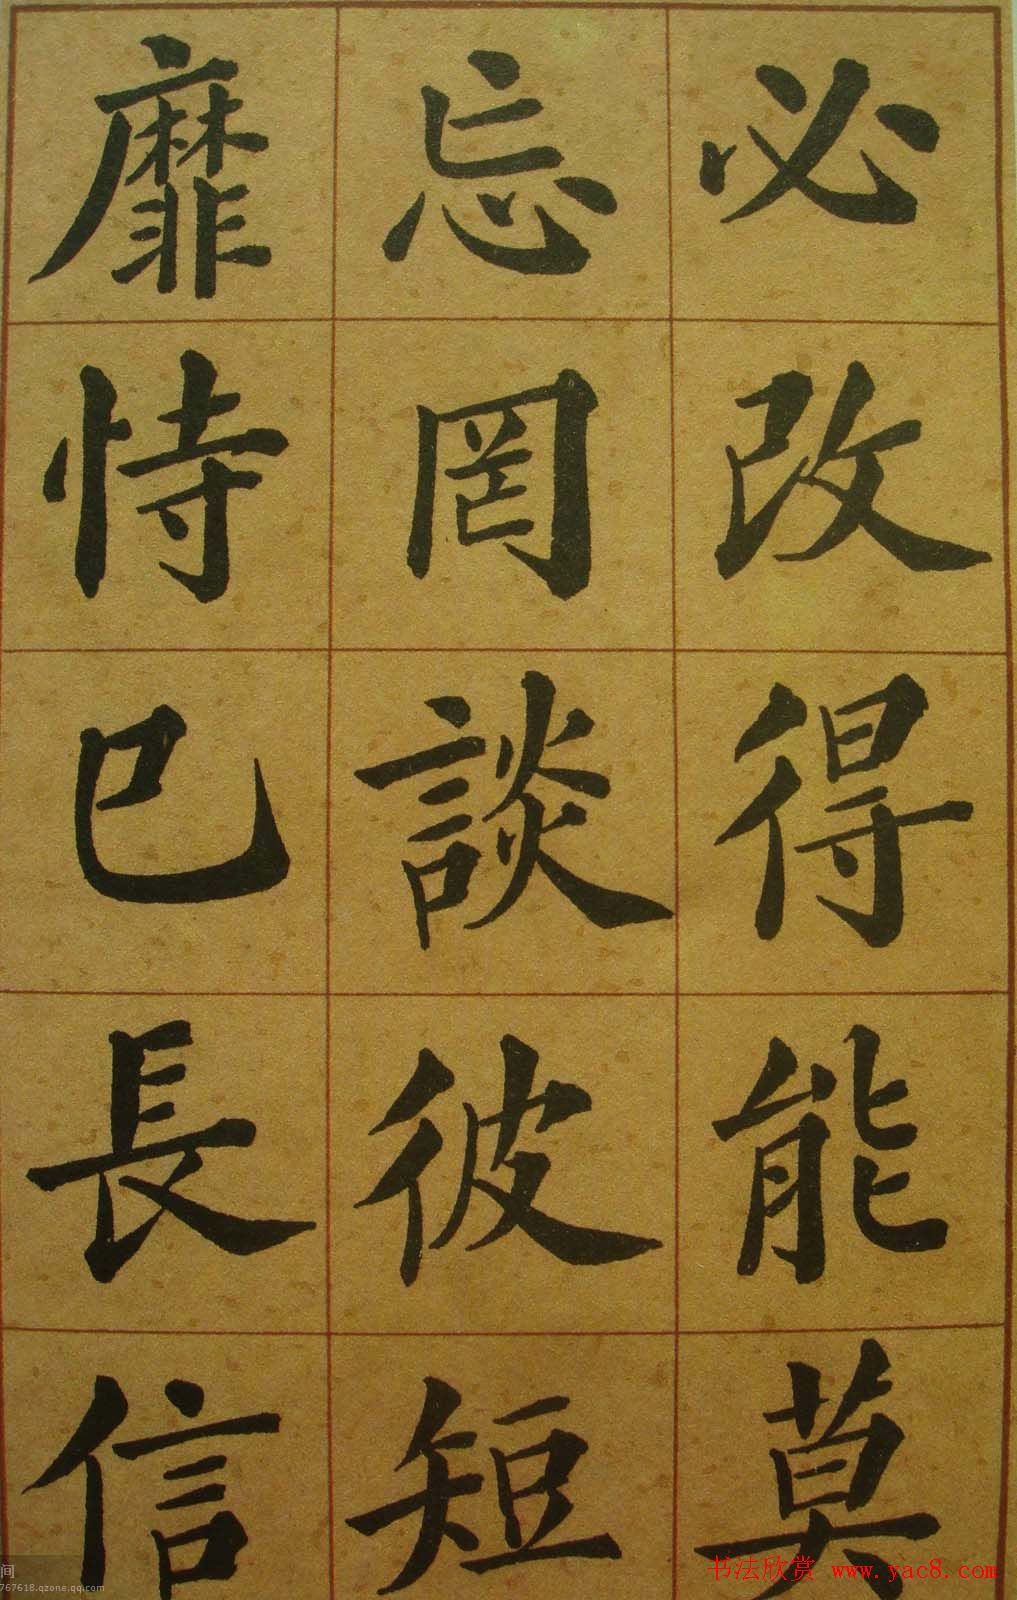 必改得能莫
忘罔談彼短
靡恃已長信
书法欣赏 www.yac8.com
间
767618.qzone.qq.com